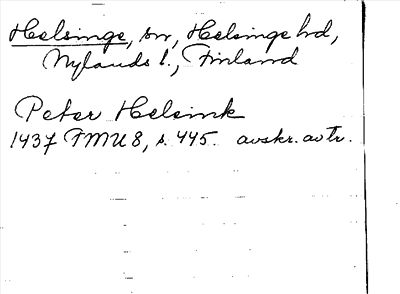 Helsinge, sn, Helsinge hd,
Nylands l., Finland
Peter Helsink
1437 FMU 8, s. 445. avskr. av tr.